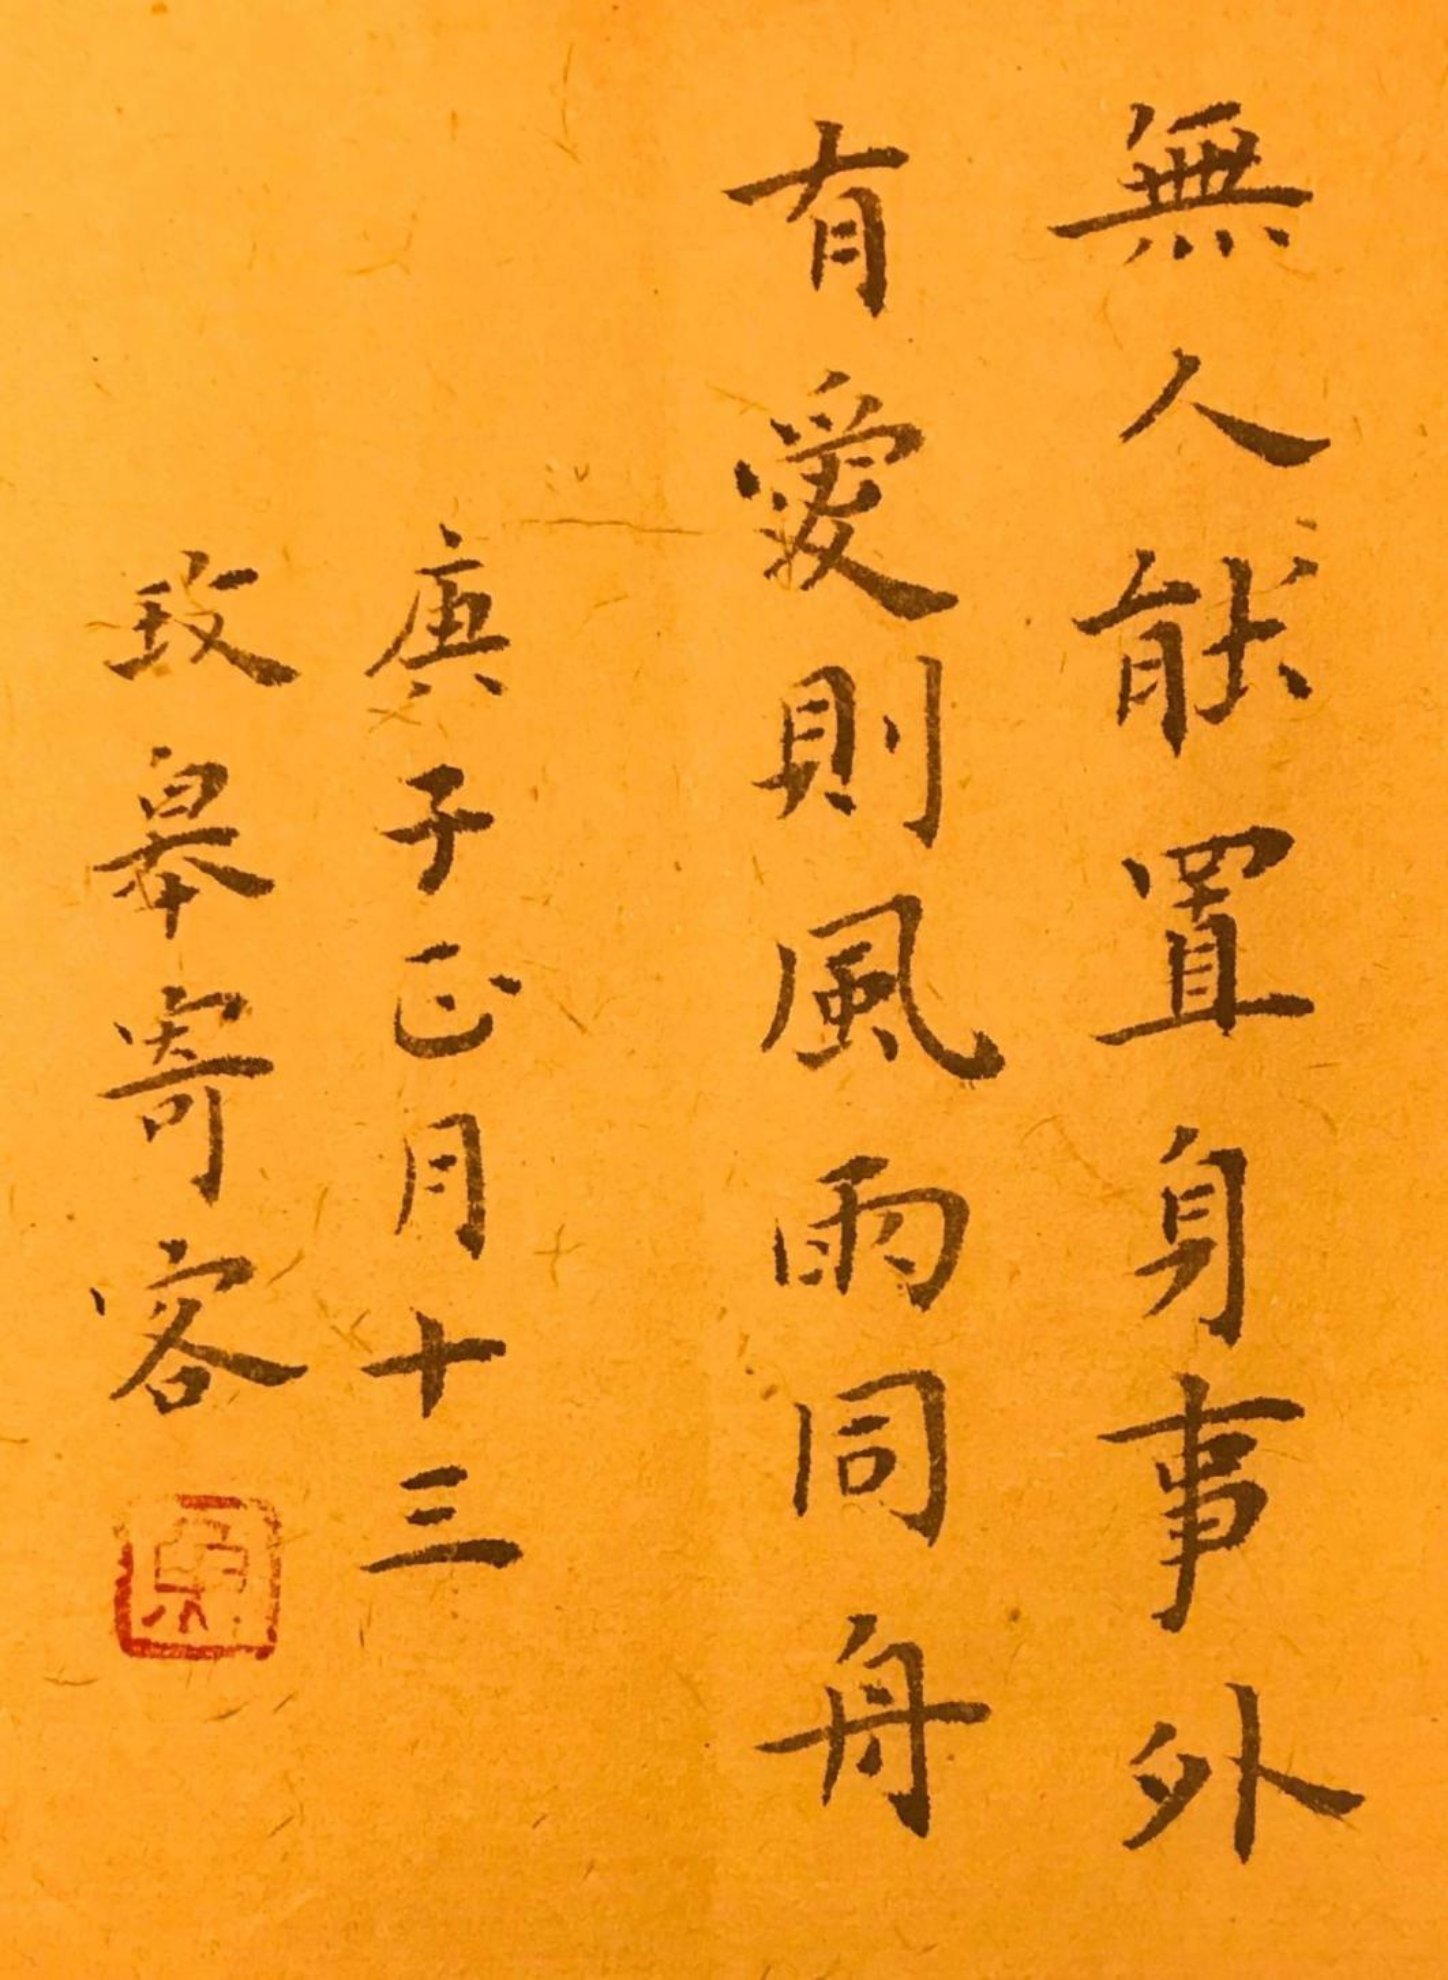 無人能置身事外
有愛則風雨同舟
庚子正月十三
致皋寄客